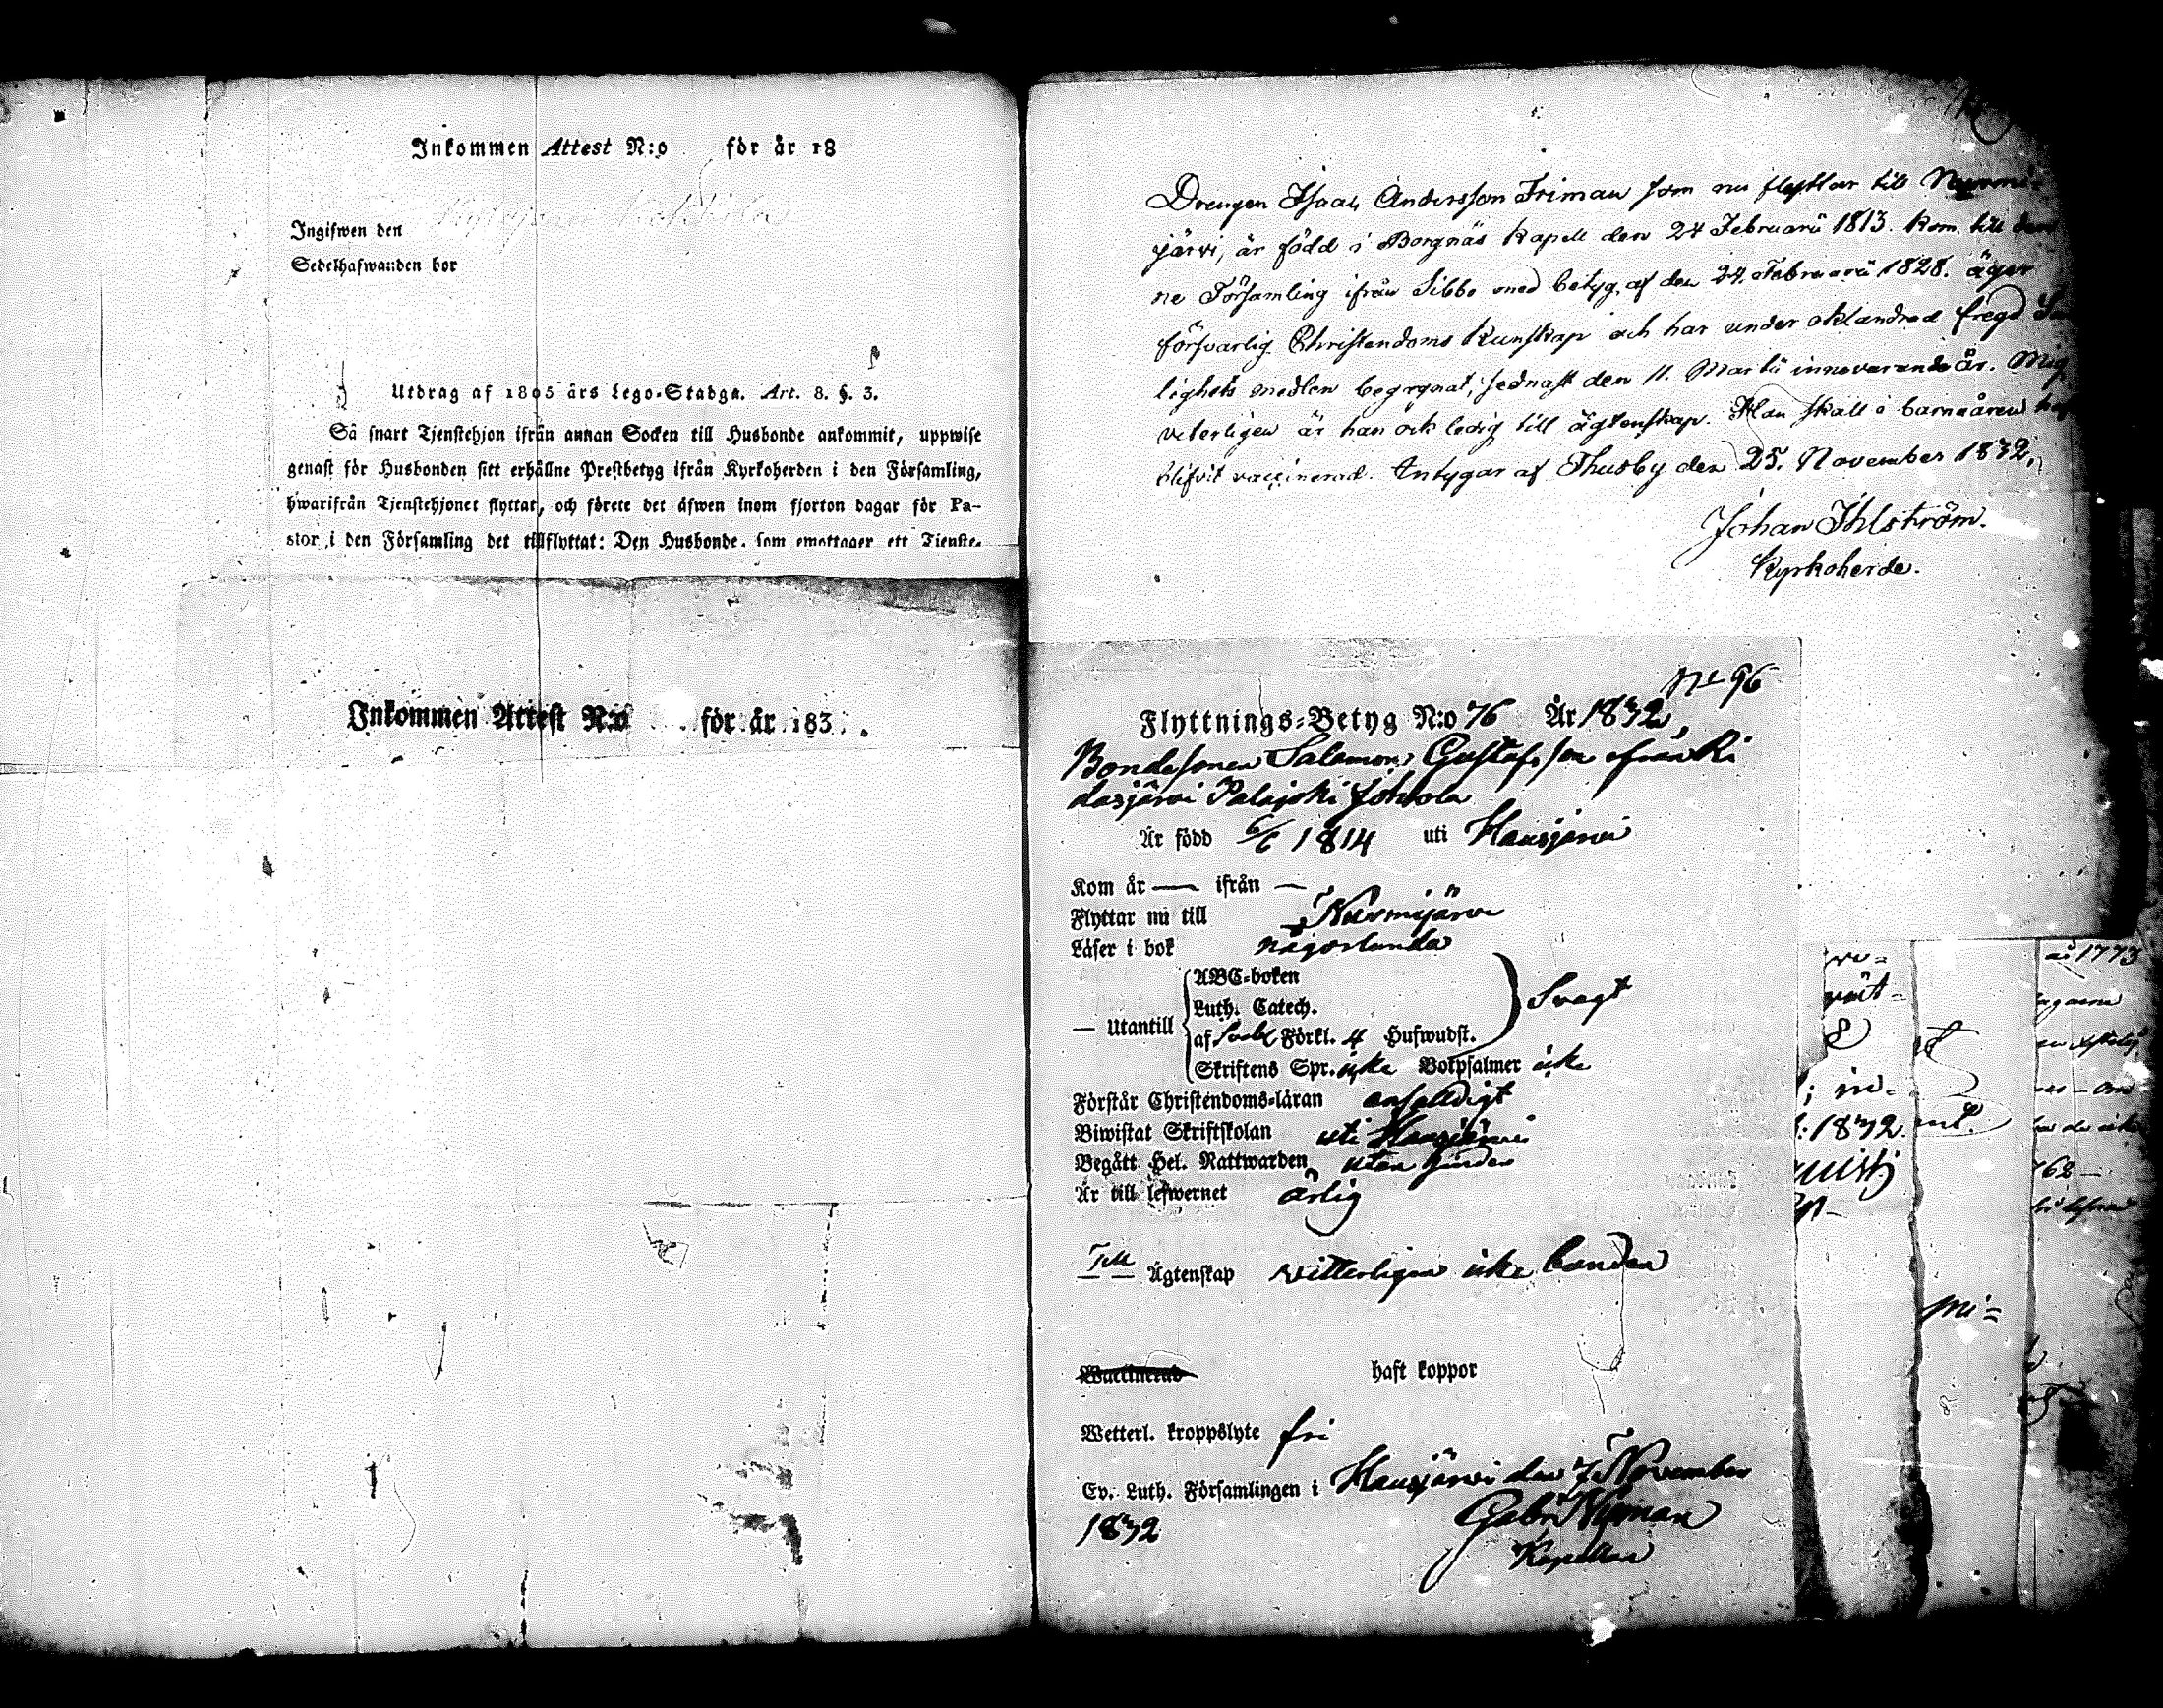 Inkommen Attest N:o för år 18
Ingifwen den
Sedelhafwanden bor
Utdrag af 1805 års Lego-Stadga. Art. 8. §. 3.
Så snart Tjenstehjon ifrån annan Socken till Husbonde ankommit, uppwise
genast för Husbonden sitt erhållne Prestbetyg ifrån Kyrkoherden i den Församling,
hwarifrån Tjenstehjonet flyttat, och förete det äfwen inom fjorton dagar för Pa-
stor i den Församling det tillflyttat: Den Husbonde, som emottager ett Tjenste-
Inkommen Attest N:o för år 183
Drengen Isaak Andersson Friman som nu flyttar till Nurmi-
järvi, är född i Borgnäs Kapell den 24 Februarii 1813. kom till den
ne Församling ifrån Sibbo med betyg af den 24. Februarii 1828. äger
försvarlig Christendoms Kunskap och har under oklandrad fregd
lighets medlen begagnat, sednast den 11. Martii innevarande år. Mig
veterligen är han ock ledig till ägtenskap. Han skall i barnaåren
blifvit vaccinerad. Intygar af Thusby den 25. November 1832.
Johan Ihlström.
Kyrkoherde.
No 96
Flyttnings-Betyg N:o 76 År 1832,
Bondesonen Salomon Gustafsson ifrån Ri
dasjärvi Palajoki Johola
Är född 6/6 1814 uti Hausjärvi
Kom år — ifrån —
Flyttar nu till Nurmijärvi
Läser i bok någorlunda
— Utantill
ABC-boken
Luth. Catech.
af Förkl. 4 Hufwudst.
Svagt
Skriftens Spr. icke Botpsalmer icke
Förstår Christendoms-läran enfaldigt
Biwistat Skriftskolan uti Hausjärvi
Begått Hel. Nattwarden utan hinder
Är till lefwernet ärlig
Till Ägtenskap vitterligen icke bunden
Waccinerad haft koppor
Wetterl. kroppslyte fri
Ev. Luth. Församlingen i Hausjärvi den 7 November
1832 Gabr Nyman
Kapellan
1773
1832.